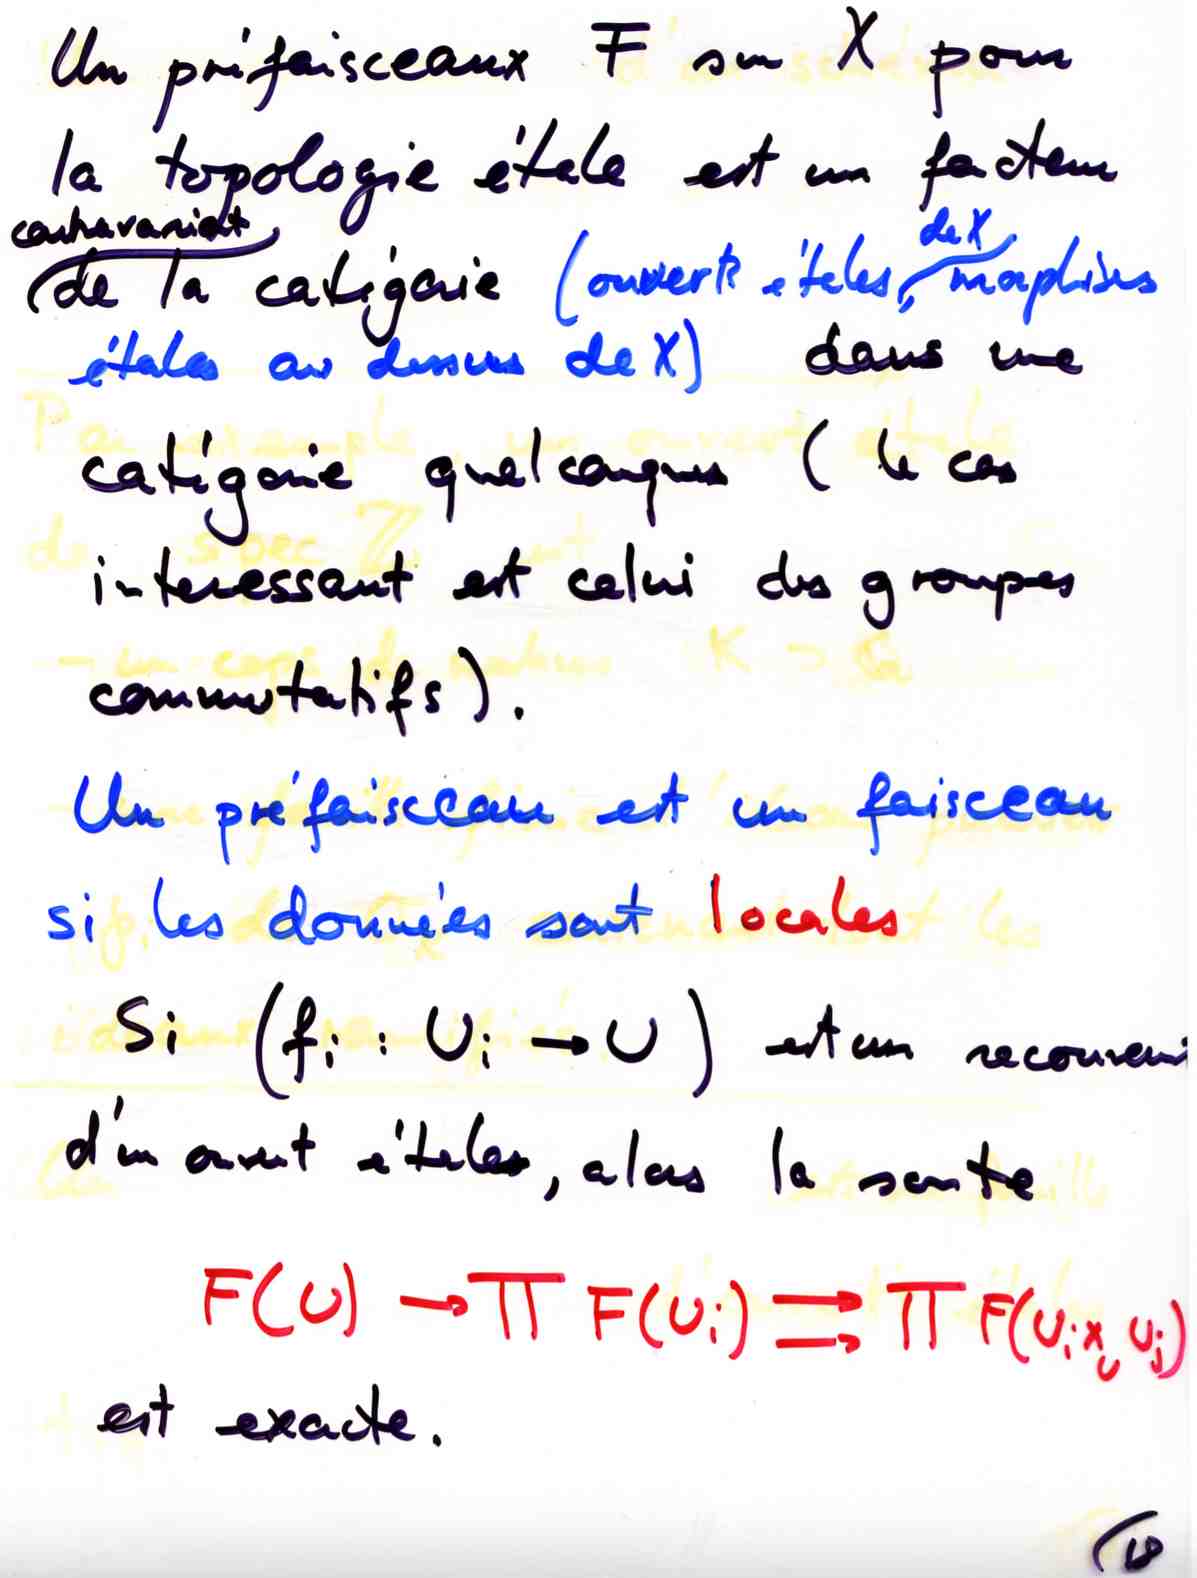 Un préfaisceaux F sur X pour
la topologie étale est un foncteur
contravariant
de la catégorie (ouverts étales de X, morphismes
étales au dessus de X) dans une
catégorie quelconque (le cas
interessant est celui des groupes
commutatifs).
Un préfaisceau est un faisceau
si les données sont locales
Si (fi : Ui → U) est un recouvrem
d'un ouvert étales, alors la suite
F(U) → ∏ F(Ui) ⇉ ∏ F(Ui ×U Uj)
est exacte.